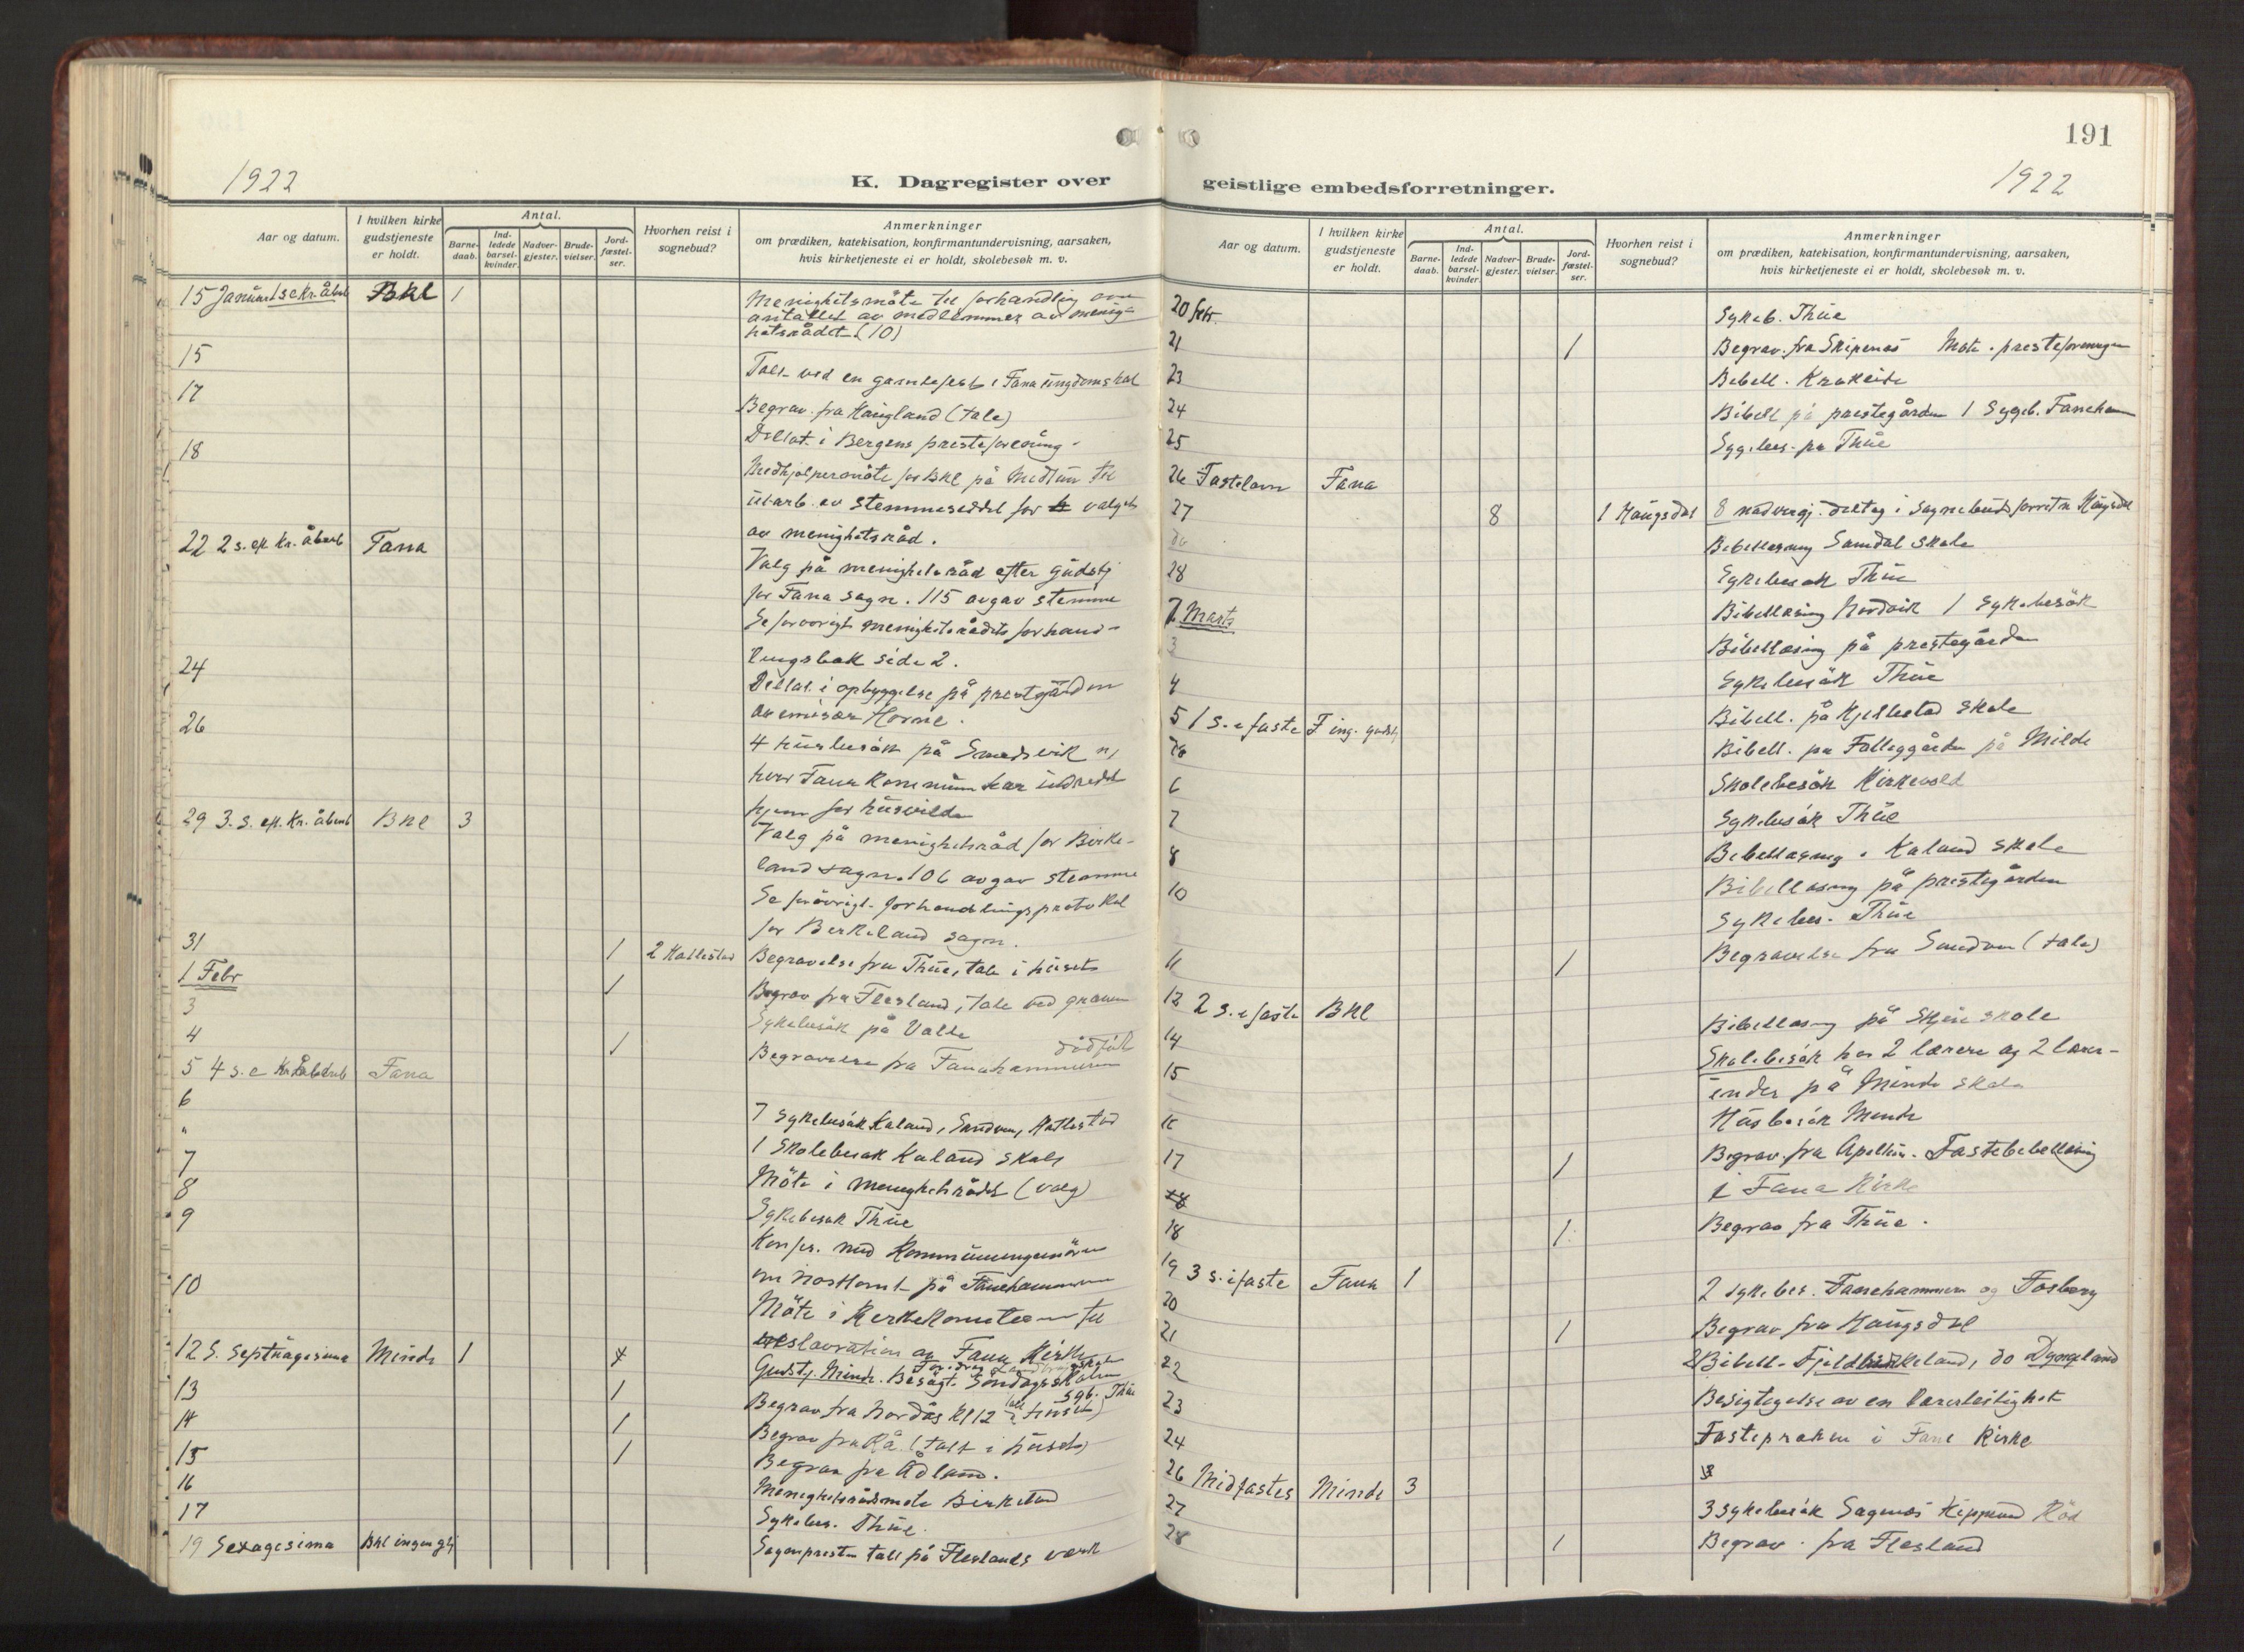 191
1922
K. Dagregister over
geistlige embedsforretninger.
1922
Aar og datum.
I hvilken kirke gudstjeneste er holdt.
Antal.
Barne-daab.
Ind-ledede barsel-kvinder.
Nadver-gjester.
Brude-vielser.
Jord-fæstel-ser.
Hvorhen reist i sognebud?
Anmerkninger
om prædiken, katekisation, konfirmantundervisning, aarsaken,
hvis kirketjeneste ei er holdt, skolebesøk m. v.
15 Januar 1 s e Kr. åbenb Bkl 1 Menighetsmöte til forhandling om
antallet av medlemmer av menig-
hetsrådet (10)
15 Tale ved en gamlefest i Fana ungdomshal
17 Begrav. fra Haugland (tale)
Deltat i Bergens presteforening.
18 Medhjelpermöte for Bkl på Midtun til
utarb. av stemmeseddel for valget
av menighetsråd.
22 2 s. eft Kr. åbenb Fana Valg på menighetsråd efter gudstj
for Fana sogn. 115 avgav stemme
Se forövrigt menighetsrådets forhand-
lingsbok side 2.
24 Deltat i opbyggelse på prestgården
av emisær Horne.
26 4 husbesök på Smedsvik
hvor Fana kommune har indredet
hjem for husvilde
29 3. s. eft. Kr. åbenb Bkl 3 Valg på menighetsråd for Birke-
land sogn. 106 avgav stemme
Se forövrigt forhandlingsprotokol
for Birkeland sogn.
31 1 2 Hatlestad Begravelse fra Thue, tale i huset
1 Febr 1 Begrav fra Flesland, tale ved graven
3 Sykebesök på Valle
4 1 Begravelse fra Fanahammeren dödfödt
5 4 s. e Kr åbenb Fana
6 7 sykebesök Kaland, Sandven, Hatlestad
" 1 Skolebesök Kaland skole
7 Möte i menighetsrådet (valg)
8 Sykebesök Thue
9 Konfer. med kommuneingeniören
om på Fanahammeren
10 Möte i Kirkekomiteen til
restauration av Fana Kirke
12 S. Septuagesima Minde 1 Gudstj. Minde. Besögt Söndagsskolen
13 1 Begrav fra Nordås kl 12 (tale i huset) sgb. Thue
14 1 Begrav fra Rå (tale i huset)
15 1 Begrav fra Ådland.
16 Menighetsrådsmöte Birkeland
17 Sykebes. Thue.
19 Sexagesima Bkl ingen gtj Sognepresten tale på Fleslands verk
Aar og datum.
I hvilken kirke gudstjeneste er holdt.
Antal.
Barne-daab.
Ind-ledede barsel-kvinder.
Nadver-gjester.
Brude-vielser.
Jord-fæstel-ser.
Hvorhen reist i sognebud?
Anmerkninger
om prædiken, katekisation, konfirmantundervisning, aarsaken,
hvis kirketjeneste ei er holdt, skolebesøk m. v.
20 febr. Sykeb. Thue
21 1 Begrav. fra Skipenes Möte i presteforeningen
23 Bibell. Krokeide
24 Bibell på prestegården 1 Sygeb. Faneham
25 Sygebes. på Thue
26 Fastelavn Fana
27 8 1 Haugsdal 8 nadvergj. deltog i sognebudsforretn Haugsdal
do Bibellesning Samdal skole
28 Sykebesök Thue
1 Marts Bibellesning Nordvik 1 Sykebesök
3 Bibellesning på prestegården
4 Sykebesök Thue
5 1 s. i faste F ing. gudstj Bibell. på Hjellestad skole
do Bibell. på Fatleggården på Milde
6 Skolebesök Kirkevold
7 Sykebesök Thue
8 Bibellesning i Kaland skole
10 Bibellesning på prestegården
Sykebes. Thue
11 1 Begravelse fra Sandven (tale)
12 2 s. i faste Bkl Bibellesning på Skjøi skole
14 Skolebesök hos 2 lærere og 2 lærer-
15 inder på Minde skole
16 Husbesök Minde
17 1 Begrav. fra Apeltun. Fastebibellesning
18 i Fana Kirke
18 1 Begrav fra Thue.
19 3 s. i faste Fana 1 2 sykebes. Fanehammern og Fosberg
20
21 1 Begrav fra Haugsdal
22 2 Bibell. Fjeldbirkeland, do Dyngeland
23 Besigtigelse av en lærerleilighet
24 Fasteprøken i Fane Kirke
26 Midfaste s Minde 3
27 3 sykebesök Sagenæs Kippund Röd
28 1 Begrav. fra Flesland